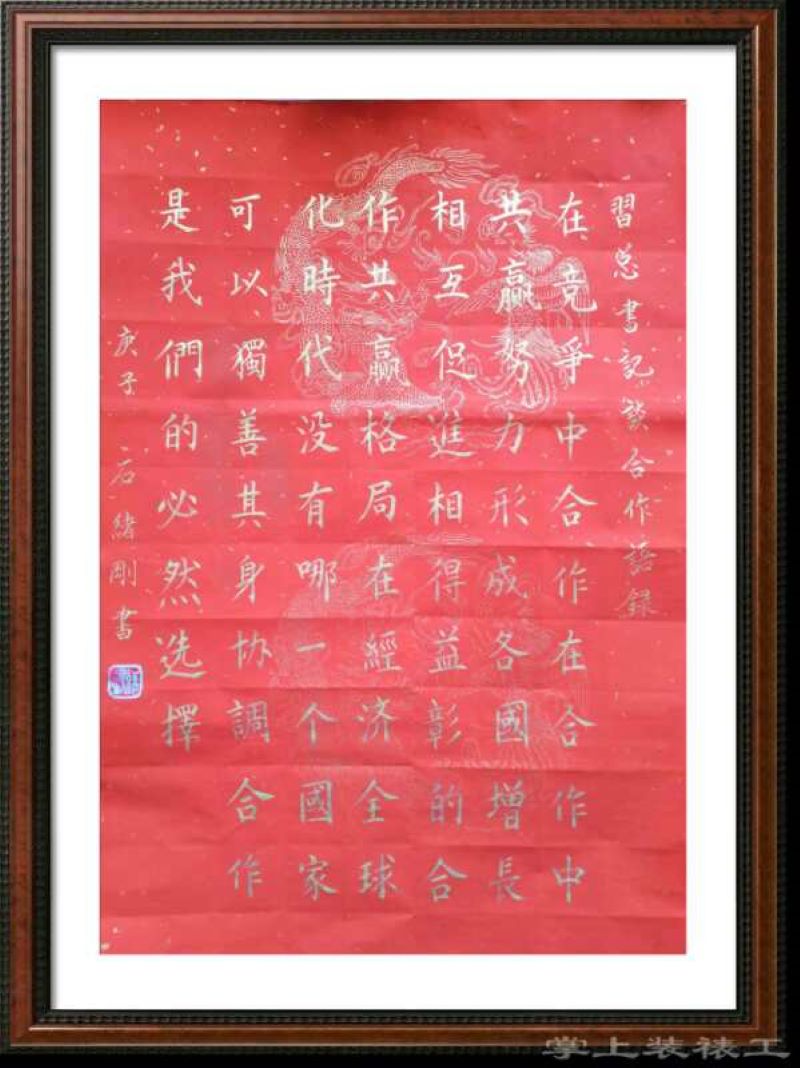 習总書記談合作語録
在竞爭中合作在合作中
共贏努力形成各國增長
相互促進相得益彰的合
作共贏格局在經济全球
化時代没有哪一个國家
可以獨善其身协調合作
是我們的必然选擇
庚子 石緒剛書
掌上装裱工